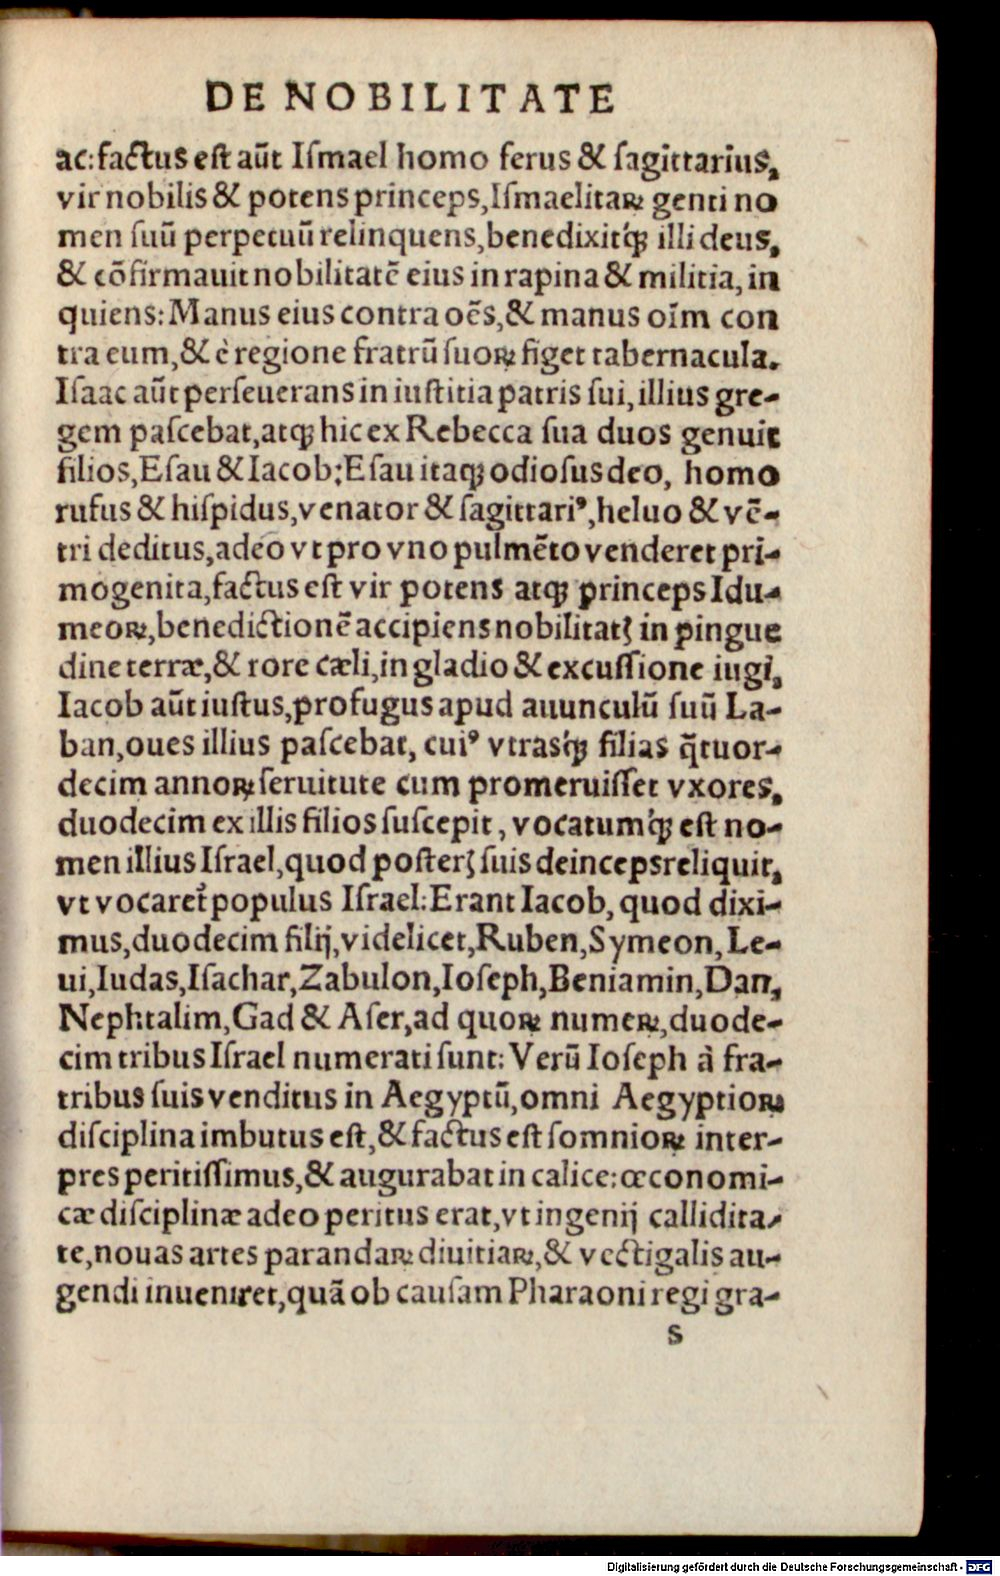 DE NOBILITATE
ac: factus est aũt Iſmael homo ferus & ſagittarius,
vir nobilis & potens princeps, Iſmaelitaꝝ genti no
men ſuũ perpetuũ relinquens, benedixitq́ꝫ illi deus,
& cõfirmauit nobilitatẽ eius in rapina & militia, in
quiens: Manus eius contra oẽs, & manus oĩm con
tra eum, & è regione fratrũ ſuoꝝ figet tabernacula.
Iſaac aũt perſeuerans in iuſtitia patris ſui, illius gre-
gem paſcebat, atqꝫ hic ex Rebecca ſua duos genuit
filios, Eſau & Iacob: Eſau itaqꝫ odioſus deo, homo
rufus & hiſpidus, venator & ſagittariꝰ, heluo & vẽ-
tri deditus, adeo vt pro vno pulmẽto venderet pri-
mogenita, factus eſt vir potens atqꝫ princeps Idu-
meoꝝ, benedictionẽ accipiens nobilitatꝫ in pingue
dine terræ, & rore cæli, in gladio & excuſſione iugi,
Iacob aũt iuſtus, profugus apud auunculũ ſuũ La-
ban, oues illius paſcebat, cuiꝰ vtraſq́ꝫ filias q̃tuor-
decim annoꝝ ſeruitute cum promeruiſſet vxores,
duodecim ex illis filios ſuſcepit, vocatumq́ꝫ eſt no-
men illius Iſrael, quod poſterꝫ ſuis deinceps reliquit,
vt vocaret᷑ populus Iſrael: Erant Iacob, quod dixi-
mus, duodecim filij, videlicet, Ruben, Symeon, Le-
ui, Iudas, Iſachar, Zabulon, Ioſeph, Beniamin, Dan,
Nephtalim, Gad & Aſer, ad quoꝝ numeꝝ, duode-
cim tribus Iſrael numerati ſunt: Verũ Ioſeph à fra-
tribus ſuis venditus in Aegyptũ, omni Aegyptioꝝ
diſciplina imbutus eſt, & factus eſt ſomnioꝝ inter-
pres peritiſſimus, & augurabat in calice: œconomi-
cæ diſciplinæ adeo peritus erat, vt ingenij callidita-
te, nouas artes parandaꝝ diuitiaꝝ, & vectigalis au-
gendi inueniret, quã ob cauſam Pharaoni regi gra-
s
Digitalisierung gefördert durch die Deutsche Forschungsgemeinschaft - DFG